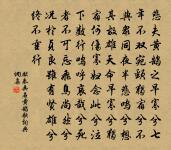 悲夫黃鵠之早寡兮七
年不双宛頸獨宿兮不
與衆同夜半悲鳴兮想
其故雄天命早寡兮獨
宿何傷寡婦念此兮泣
下數行嗚呼哀哉兮死
者不可忘飛鳥尚然兮
況於貞良雖有賢雄兮
終不重行